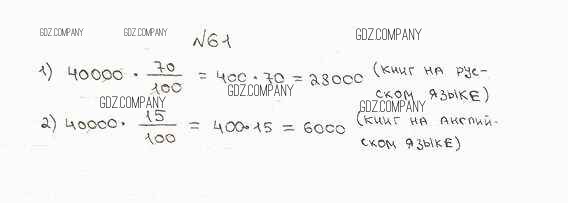 GDZ.COMPANY GDZ.COMPANY GDZ.COMPANY
№61
1) 40000 · 70/100 = 400 · 70 = 28000 (книг на рус-
GDZ.COMPANY
ском языке)
GDZ.COMPANY GDZ.COMPANY
2) 40000 · 15/100 = 400·15 = 6000 (книг на англий-
ском языке)